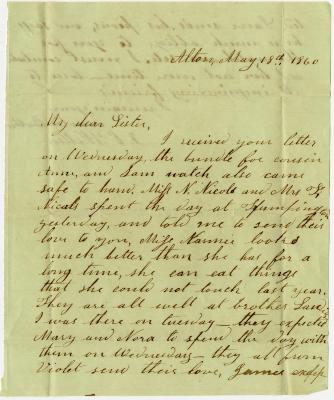 Alton, May 18th, 1860
My dear Sister,
I received your letter
on Wednesday, the bundle for cousin
Ann, and Sam watch also came
safe to hand. Miss N. Nicols and Mrs
Nicols spent the day at
yesterday, and told me to send their
love to you, Miss Nannie looks
much better than she has for a
long time, she can eat things
that she could not touch last year.
They are all well at brother
I was there on tuesday – they expected
Mary and Nora to spend the day with
them on Wednesday – they all from
Violet send their love, James